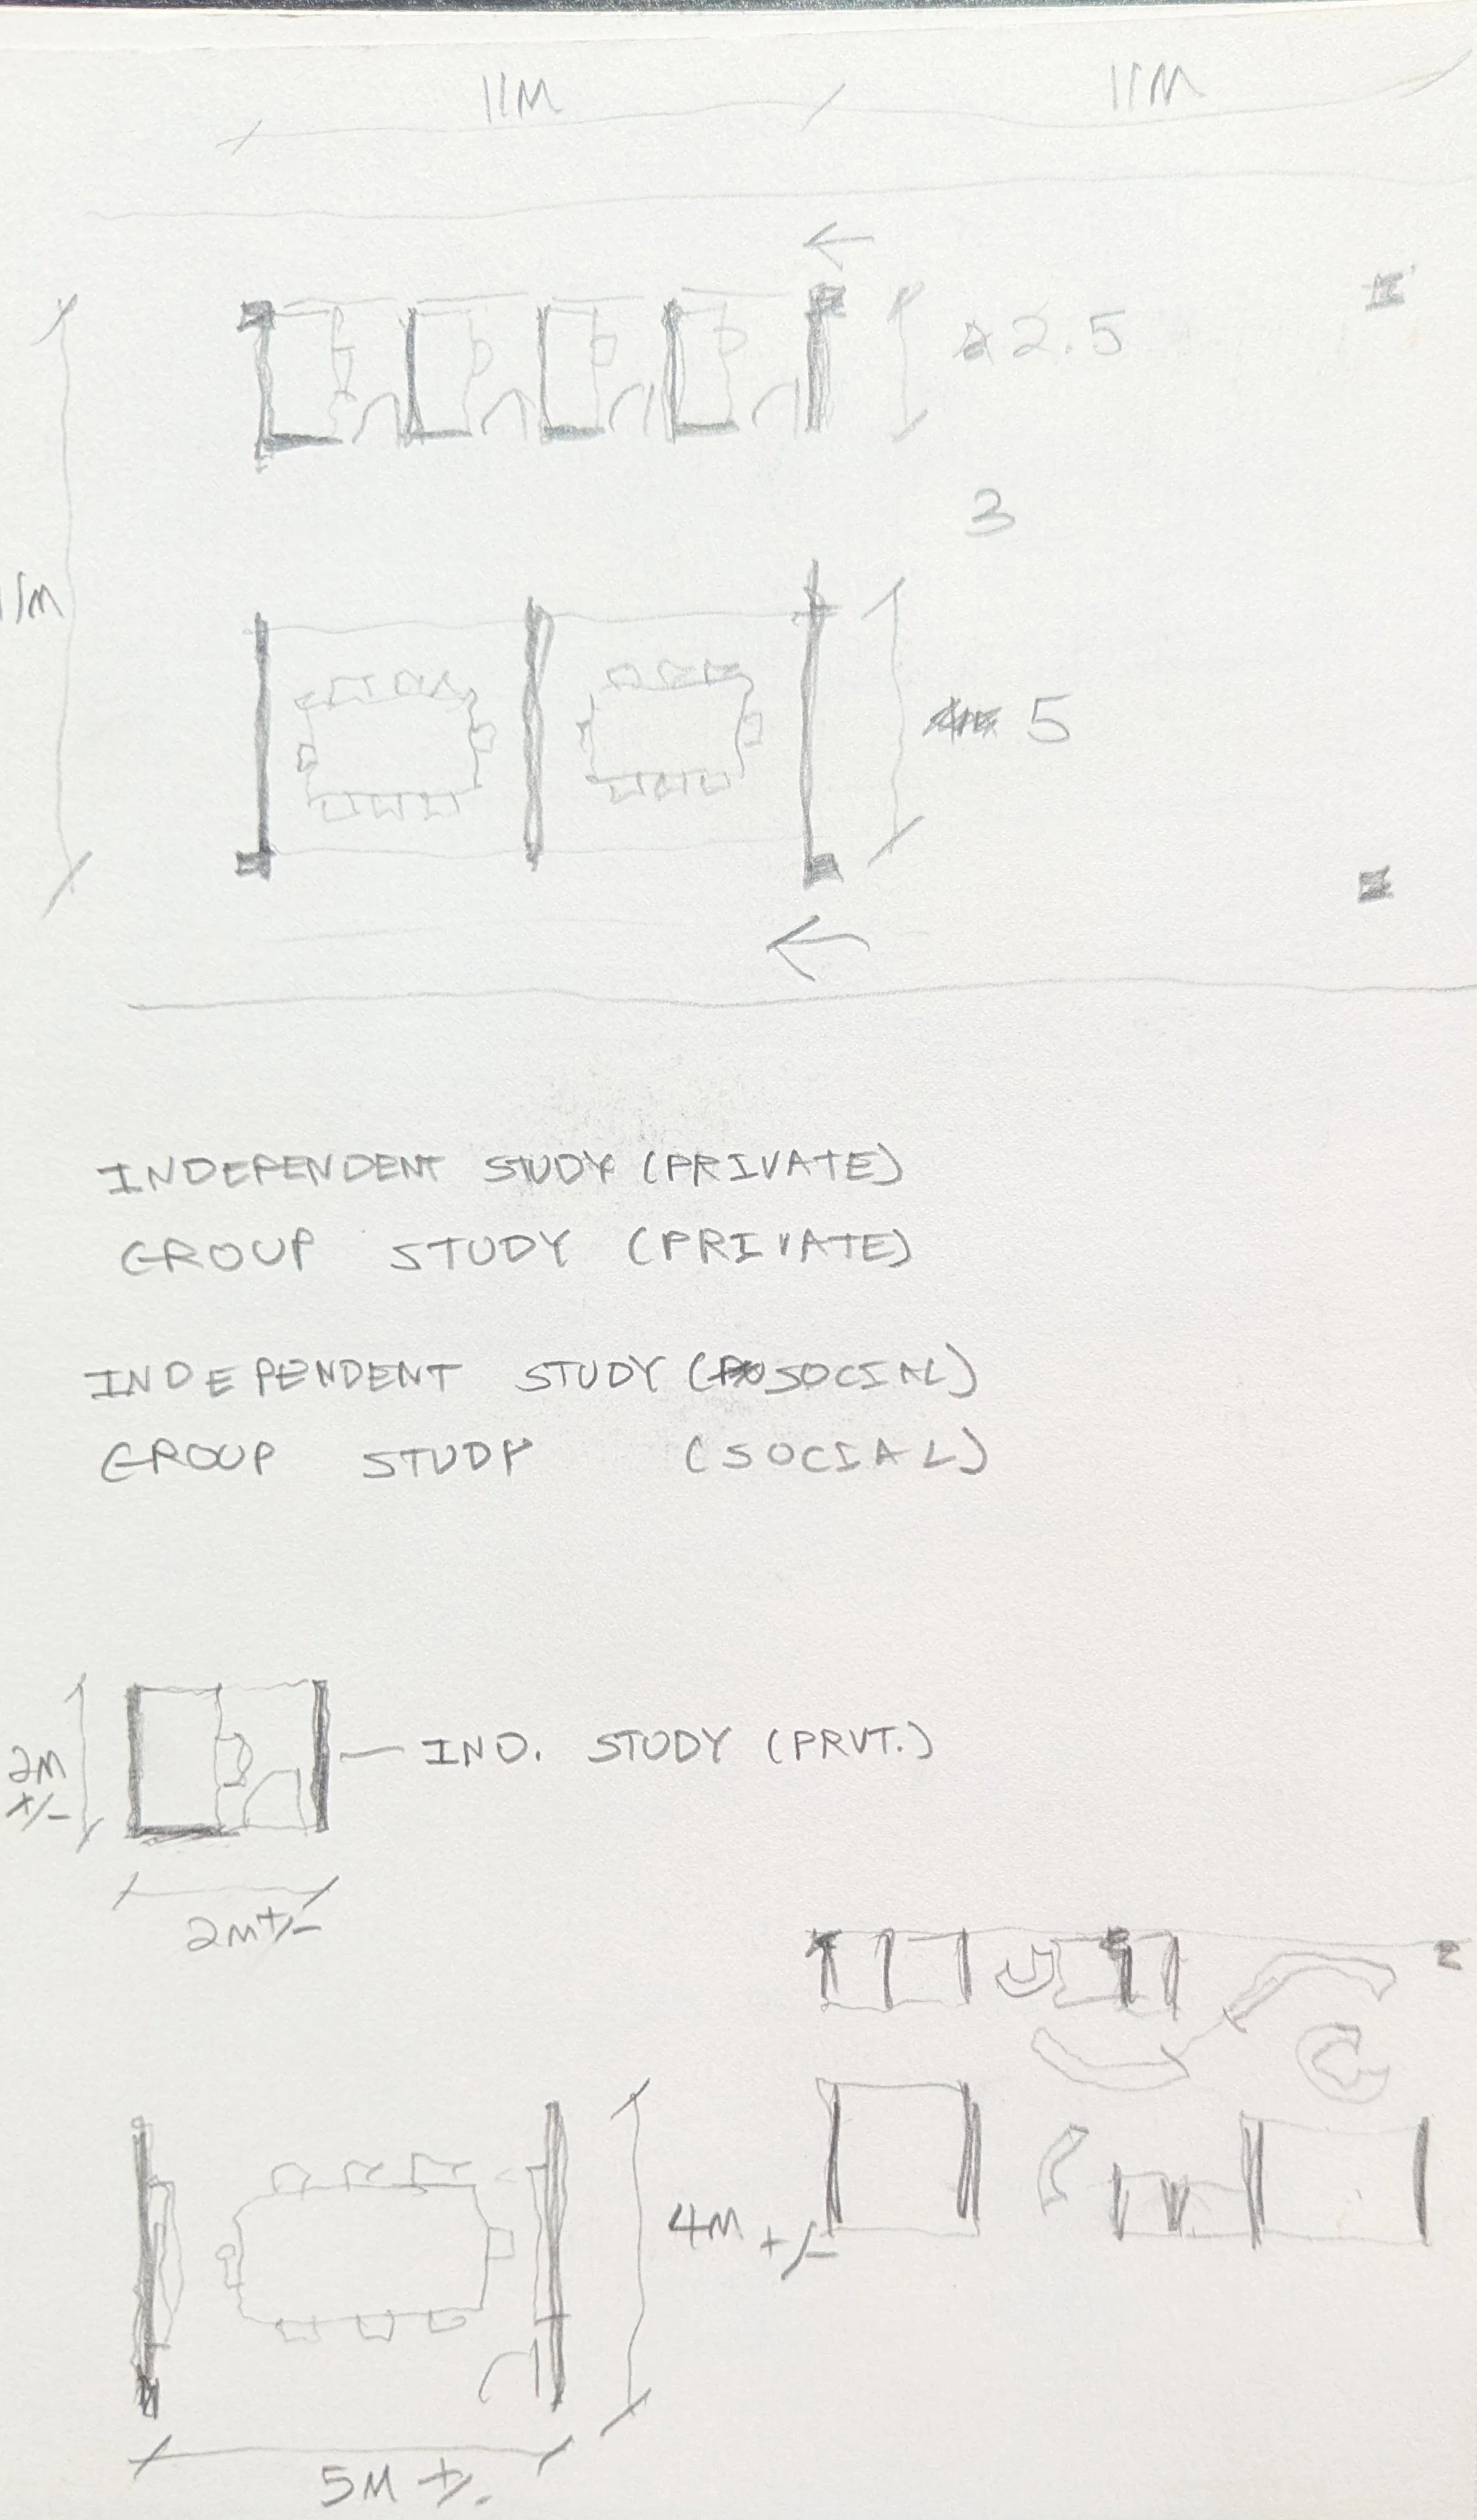 11M 11M
2.5
3
11M
5
INDEPENDENT STUDY (PRIVATE)
GROUP STUDY (PRIVATE)
INDEPENDENT STUDY (SOCIAL)
GROUP STUDY (SOCIAL)
2M +/-
IND. STUDY (PRVT.)
2M +/-
4M +/-
5M +/-